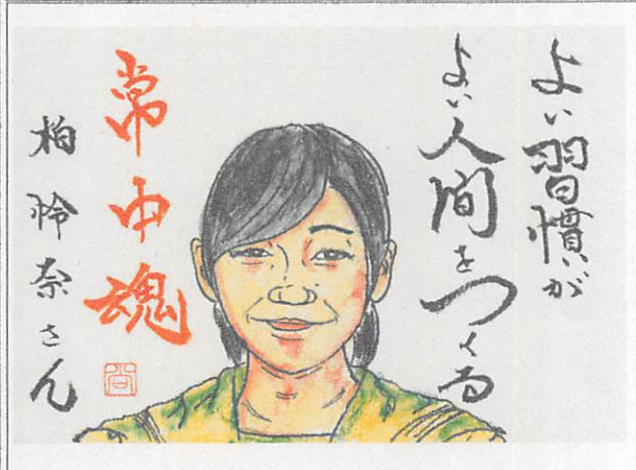 よい習慣が
よい人間をつくる
常中魂
柏怜奈さん
尚